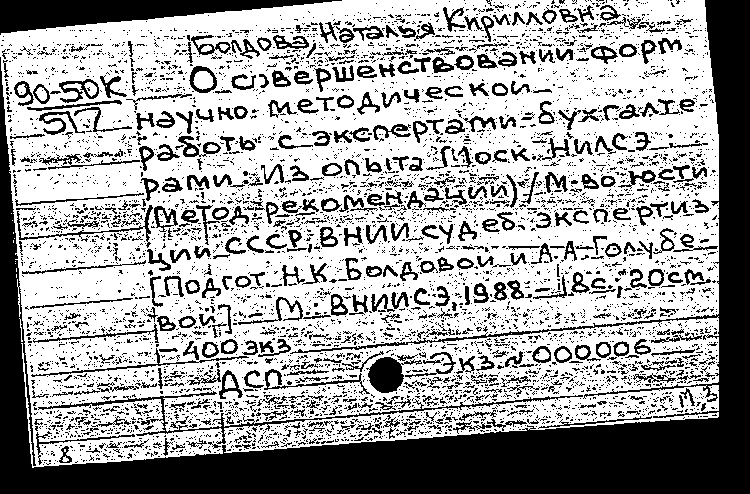 Болдова, Наталья Кирилловна
90-50К
517
О совершенствовании форм
научно-методической
работы с экспертами-бухгалте-
рами: Из опыта Моск. НИЛСЭ:
(Метод. рекомендации) / М-во юсти-
ции СССР, ВНИИ судеб. экспертиз
[Подгот. Н.К. Болдовой и А.А. Голубе-
вой] - М.: ВНИИСЭ, 1988. - 18с.; 20см.
- 400 экз
ДСП. Экз. № 000006
М, 3
8